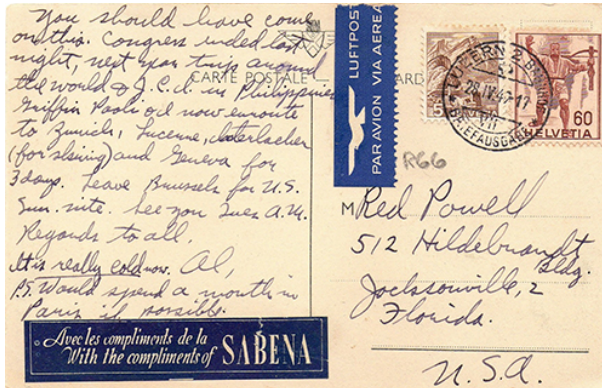 You should leave come
on this. Congress ended last
night, next year trip around
the world & J.C.I. in Philippines
Griffin Paoli & I now enroute
to Zurich, Lucerne, Interlachen
(for skiing) and Geneva for
3 days. Leave Brussels for U.S.
Sun. nite. See you Tues A.M.
Regards to all.
It is really cold now. Al,
P.S. Would spend a month in
Paris if possible.
Avec les compliments de la
With the compliments of SABENA
CARTE POSTALE
LUFTPOST
PAR AVION VIA AEREA
LUZERN 2
BRIEFAUSGABE
5
60
HELVETIA
R66
M Red Powell
512 Hildebrandt
Bldg.
Jacksonville, 2
Florida.
U.S.A.